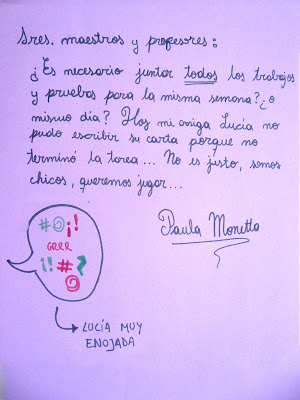 Sres. maestros y profesores:
¿Es necesario juntar todos los trabajos
y pruebas para la misma semana? ¿o
mismo día? Hoy mi amiga Lucía no
pudo escribir su carta porque no
terminó la tarea... No es justo, somos
chicos, queremos jugar...
Paula Monetto
#@¡!
GRRR
¡!#?
@
LUCÍA MUY
ENOJADA